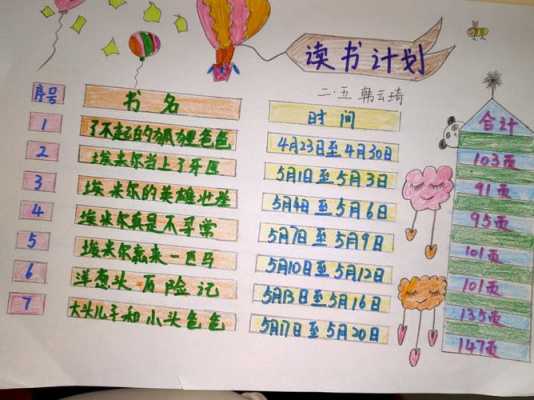 读书计划
二·五 韩云琦
序号 书名 时间 合计
1 了不起的狐狸爸爸 4月23日至4月30日 103页
2 埃米尔当上了牙医 5月1日至5月3日 91页
3 埃米尔的英雄业绩 5月4日至5月6日 95页
4 埃米尔真是不寻常 5月7日至5月9日 101页
5 埃米尔就来一匹马 5月10日至5月12日 101页
6 洋葱头历险记 5月13日至5月16日 135页
7 大头儿子和小头爸爸 5月17日至5月20日 147页